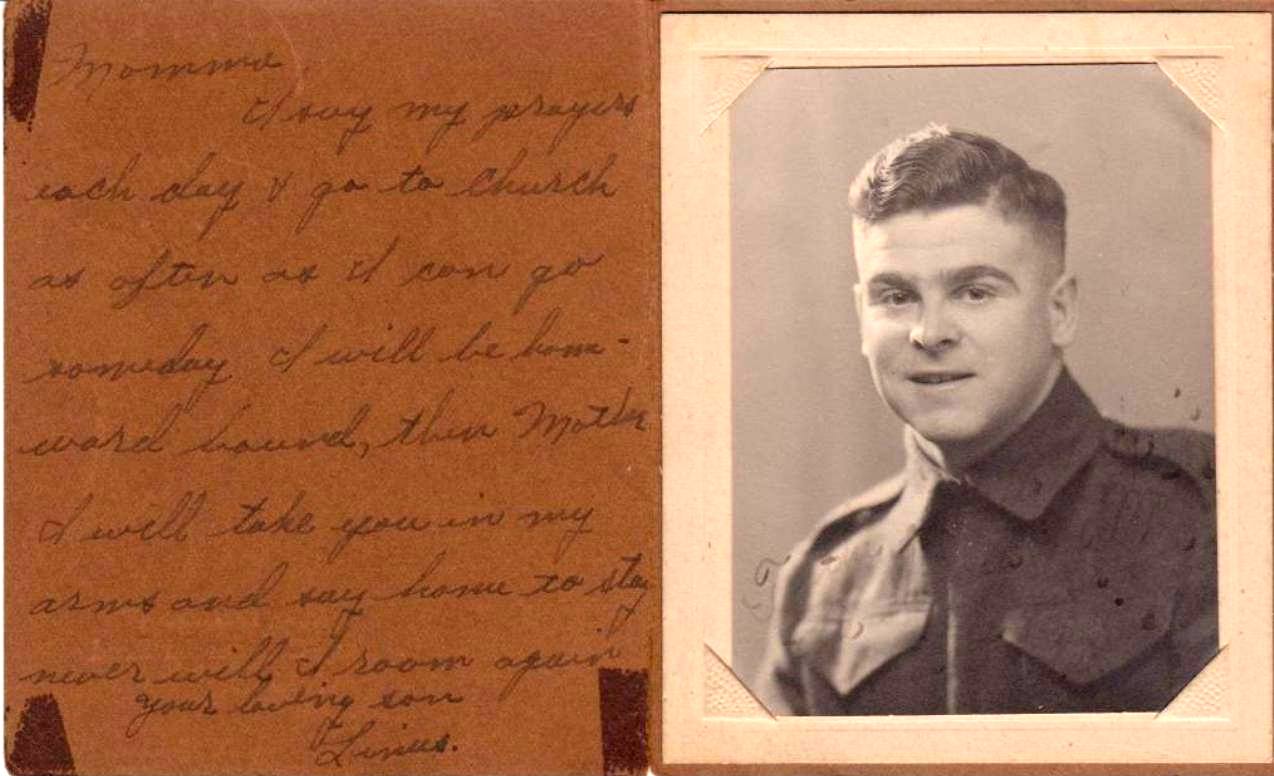 Momma
I say my prayers
each day & go to Church
as often as I can go
someday I will be home-
ward bound, then Mother
I will take you in my
arms and say home to stay
never will I roam again
your loving son
Linus.